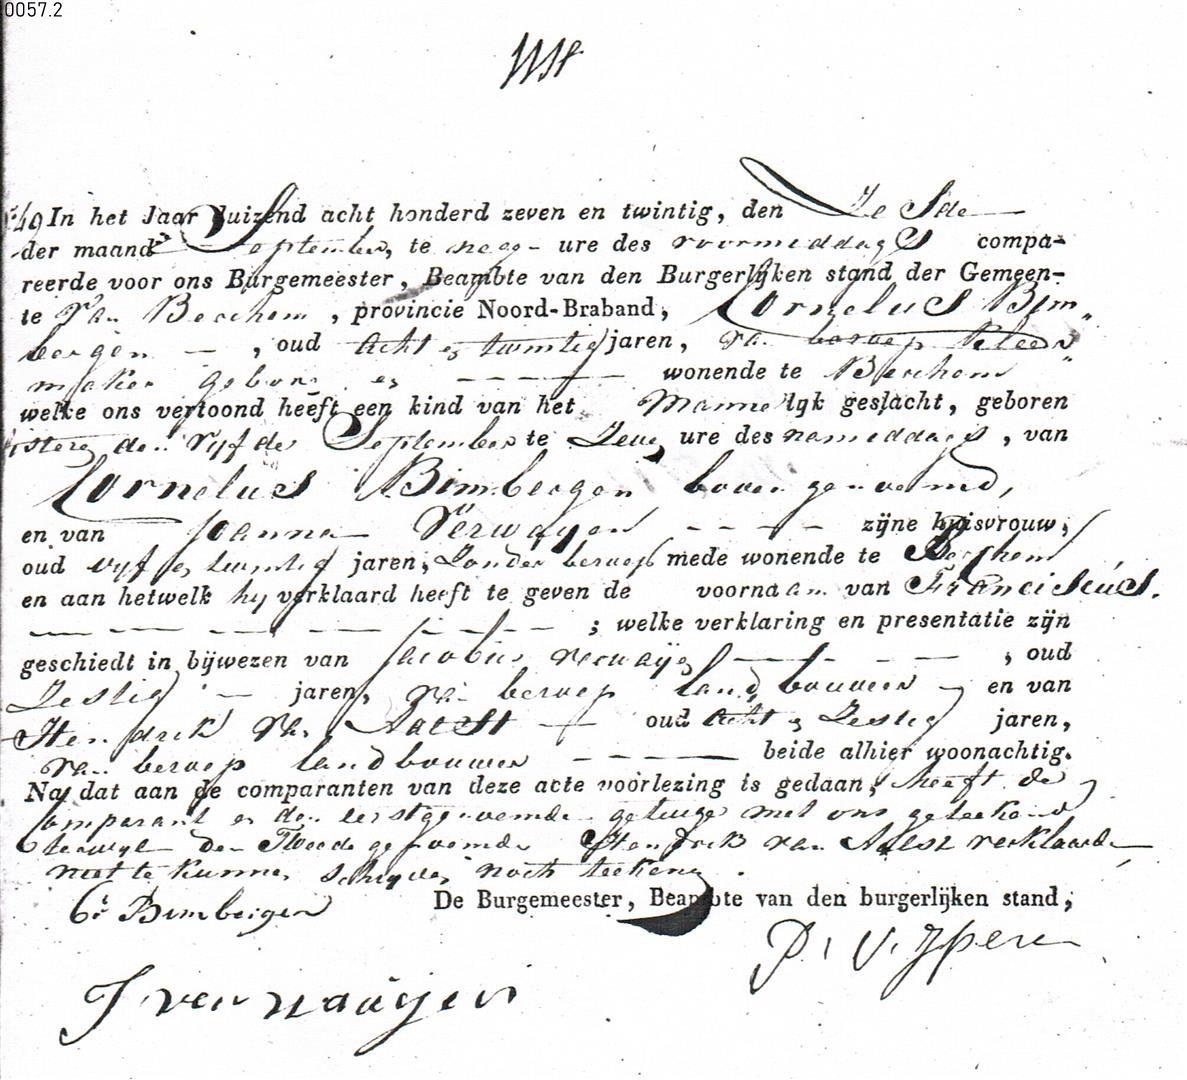 0057.2
49 In het Jaar duizend acht honderd zeven en twintig, den Zesde
der maand September, te negen ure des voormiddags compa-
reerde voor ons Burgemeester, Beambte van den Burgerlijken stand der Gemeen-
te van Berchem, provincie Noord-Braband, Cornelus Bim„
bergen —, oud acht en twintig jaren, van beroep kleer„
maker geboren en — — — wonende te Berchem
welke ons vertoond heeft een kind van het Mannelijk geslacht, geboren
gisteren den vyfde September te Zeven ure des nameddags, van
Cornelus Bimbergen boven genoemd,
en van Joanna Verwayen — — — zijne huisvrouw,
oud vyf en twintig jaren, Zonder beroep mede wonende te Berchem
en aan hetwelk hy verklaard heeft te geven de voornaam van Franciscus.
— — — — — — — ; welke verklaring en presentatie zijn
geschiedt in bijwezen van Jacobus verwayen — — — — , oud
Zestig — jaren, van beroep landbouwer — en van
Hendrik van Aalst — oud acht en Zestig jaren,
van beroep landbouwer — — — beide alhier woonachtig.
Na dat aan de comparanten van deze acte voorlezing is gedaan, heeft de
Comparant en den eerstgenoemde getuige met ons geteekend
terwyl den Tweede genoemde Hendrik van Aalst verklaarde
niet te kunnen schryven noch teekenen.
De Burgemeester, Beambte van den burgerlijken stand,
Cs Bimbergen
P. v. Yperen
J verwaüyen